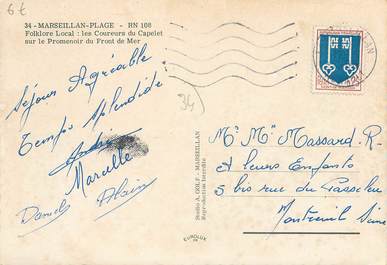 6€
34 - MARSEILLAN-PLAGE - RN 108
Folklore Local : les Coureurs du Capelet
sur le Promenoir du Front de Mer
Séjour Agréable
Temps splendide
André
Marcelle
Daniel Alain
34
Studio A. GOLF - MARSEILLAN
Reproduction Interdite
EUROLUX
Mr Me Massard. R.
et leurs Enfants
5 bis rue du
Montreuil Seine